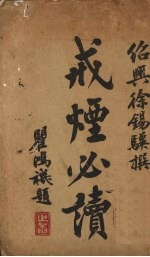 紹興徐錫驥撰
戒煙必讀
瞿鴻禨題